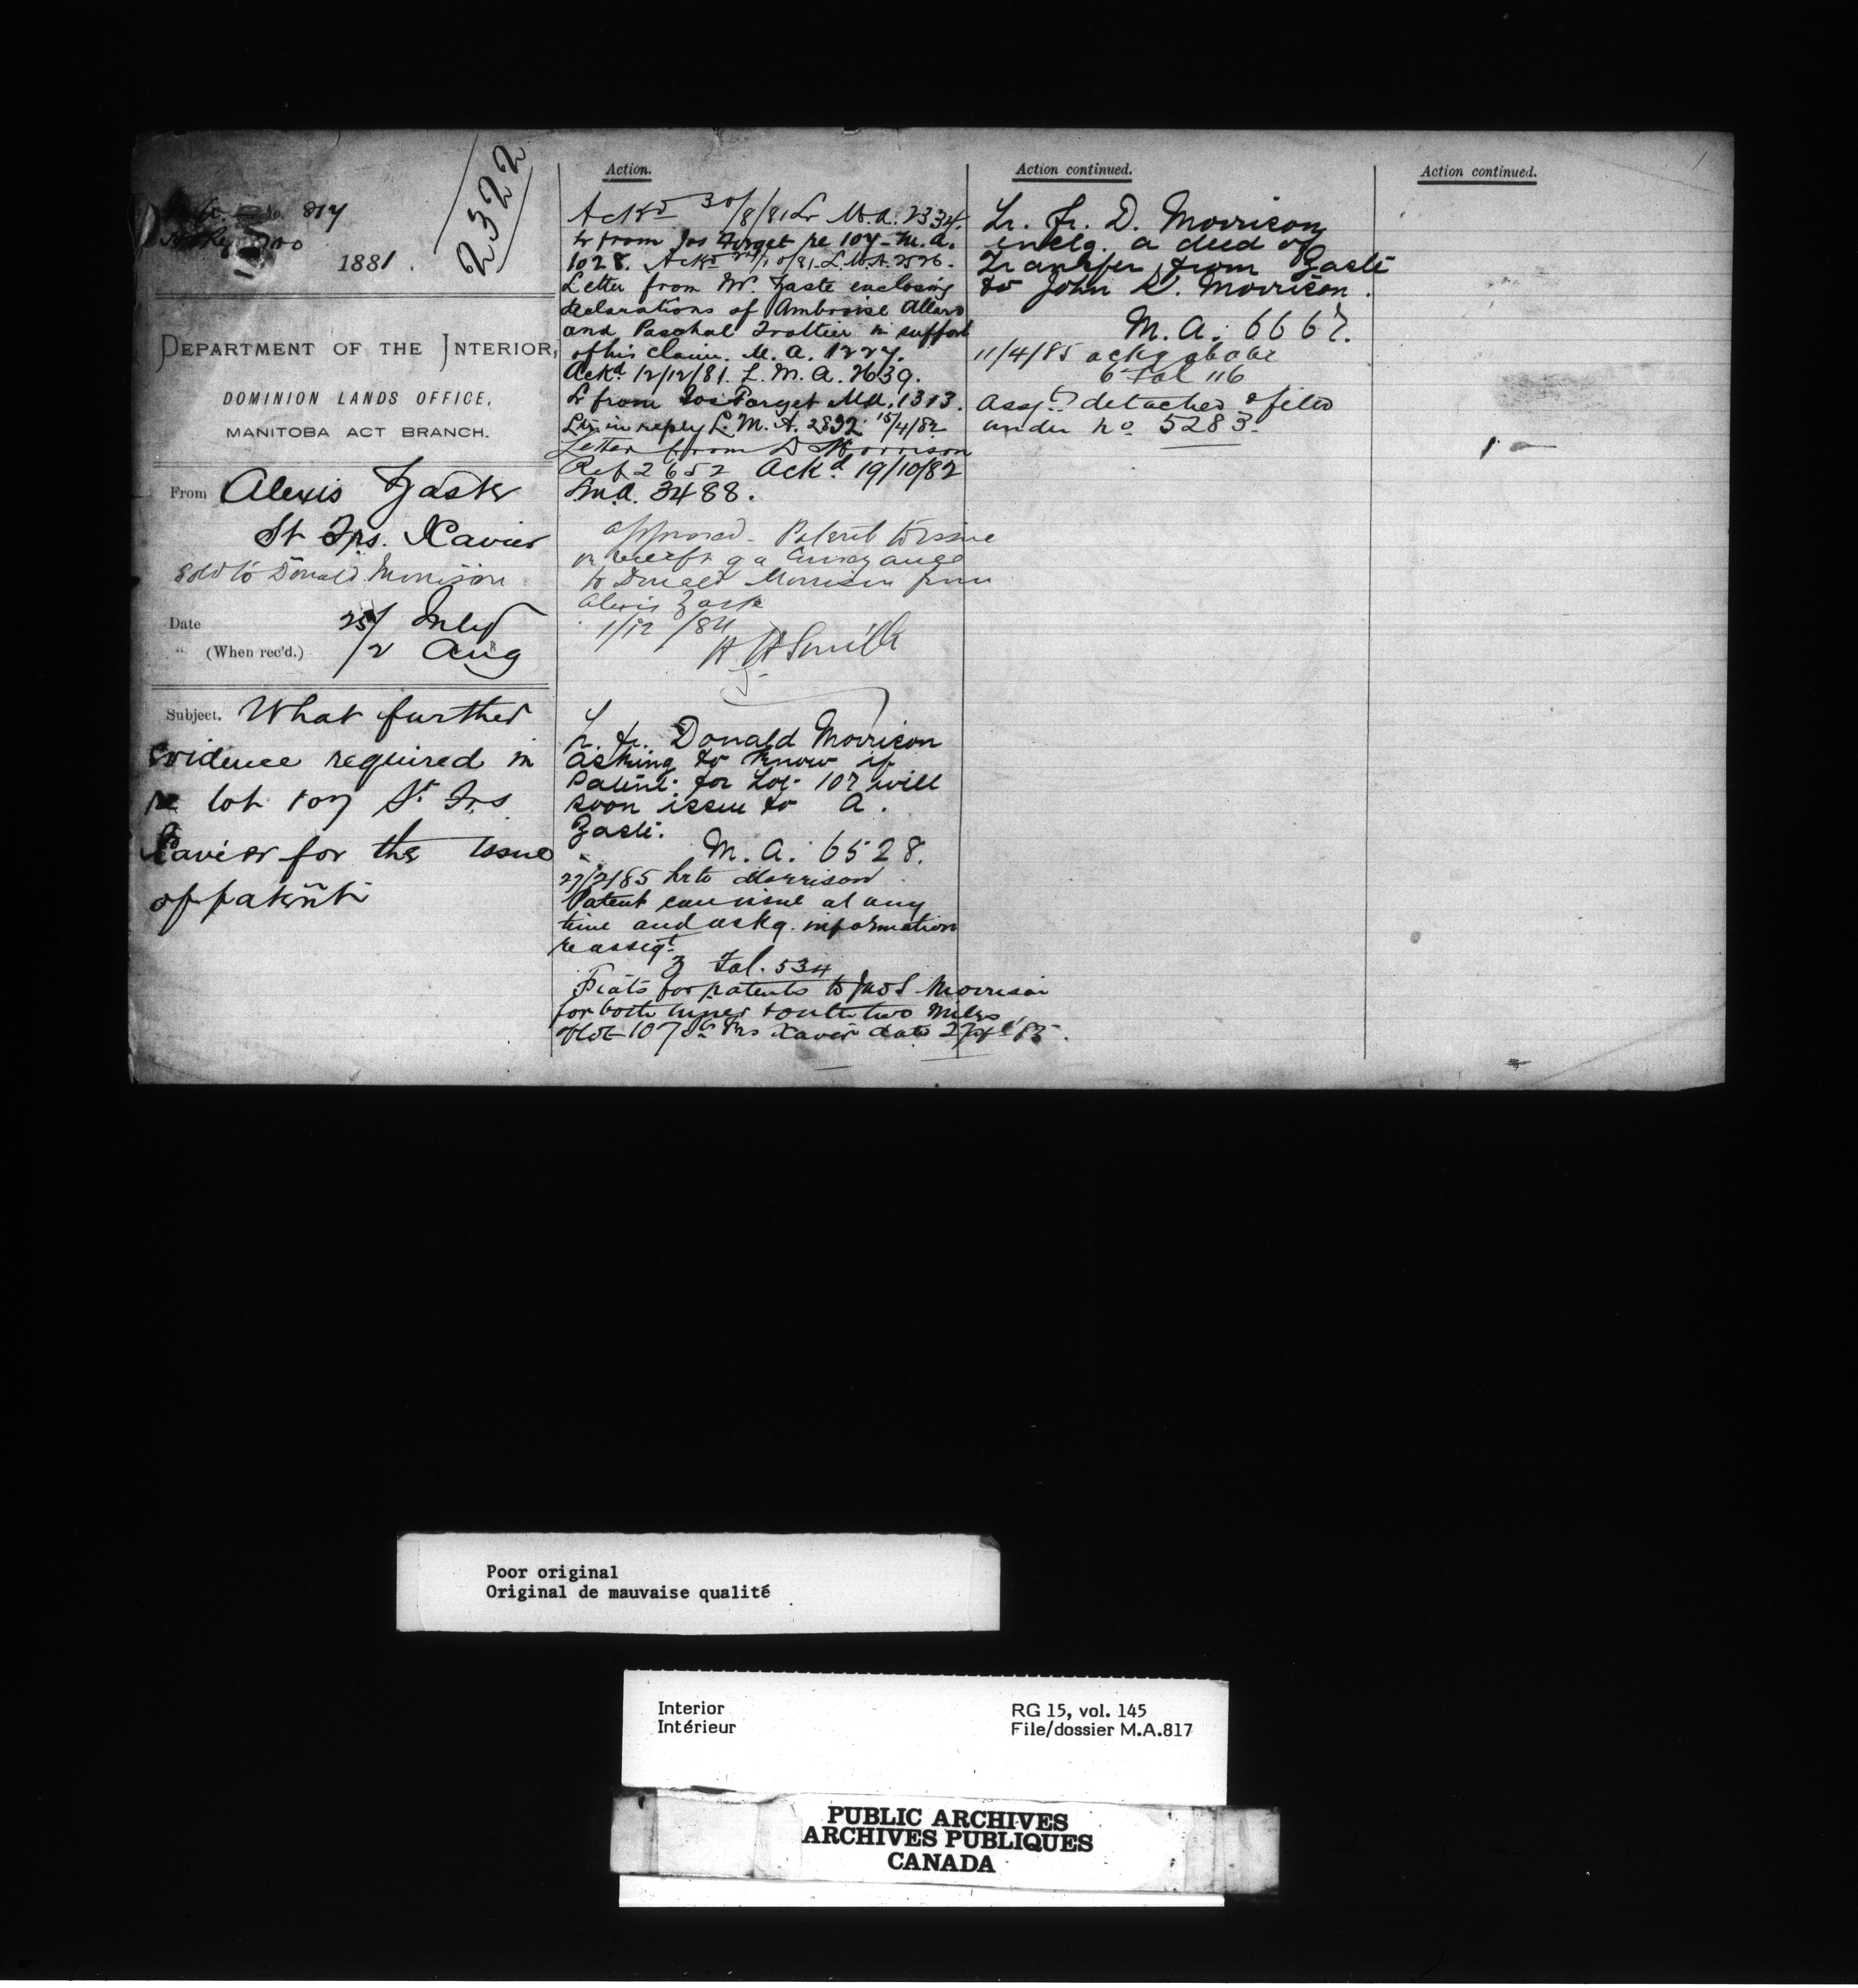 2322
No. 817
1881.
DEPARTMENT OF THE INTERIOR,
DOMINION LANDS OFFICE,
MANITOBA ACT BRANCH.
From Alexis Zaste
St Frs. Xavier
Sold to Donald Morrison
Date 25/ July
" (When rec'd.) /2 Aug
Subject. What further
evidence required in
re lot 107 St Frs
Xavier for the issue
of patent
Action.
Ackd 30/8/81 Lr M.A. 2334.
Lr from Jos Forget re 107 - M.A.
1028. Ackd /10/81. L.M.A. 2526.
Letter from Mr. Zaste enclosing
declarations of Ambroise Allard
and Paschal Trottier in support
of his claim. M.A. 1227.
Ackd 12/12/81. L.M.A. 2639.
Lr from Jos Forget M.A. 1313.
Ltr in reply L.M.A. 2892 15/4/82
Letter from D Morrison
Ref 2652 Ackd 19/10/82
L.M.A. 3488.
approved - Patent to issue
on receipt of a Conveyance
to Donald Morrison from
Alexis Zaste
1/12/84
H H Smith
Lr. fr. Donald Morrison
asking to know if
Patent for Lot 107 will
soon issue to A.
Zaste.
M.A. 6528.
27/2/85 Lr to Morrison
Patent can issue at any
time and askg. information
re assigt
3 Fol. 534
Fiats for patents to Jno D Morrison
for both inner & outer two Miles
of lot 107 St Frs Xavier date 27 apl '85.
Action continued.
Lr. Fr. D. Morrison
inclg. a deed of
Transfer from Zaste
to John D. Morrison.
M.A. 6667.
11/4/85 ackg above
6 Fol 116
Assgt detached & filed
under no 5283.
Action continued.
Poor original
Original de mauvaise qualité
Interior
Intérieur
RG 15, vol. 145
File/dossier M.A.817
PUBLIC ARCHIVES
ARCHIVES PUBLIQUES
CANADA